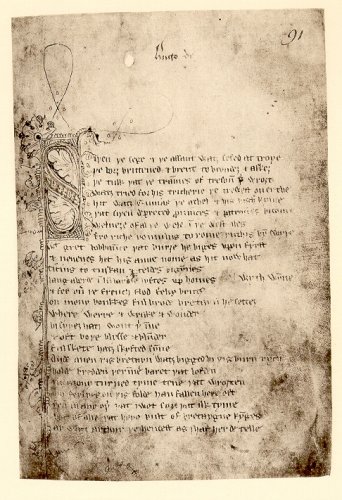 91
Hugo de
Siþen þe sege & þe assaut watz sesed at troye
þe borȝ brittened & brent to brondez & askez
þe tulk þat þe trammes of tresoun þer wroȝt
watz tried for his tricherie þe trewest on erthe
hit watz ennias þe athel & his highe kynde
þat siþen depreced prouinces & patrounes bicome
welneȝe of al þe wele in þe west iles
fro riche romulus to rome ricchis hym swyþe
gret bobbaunce þat burȝe he biges vpon fyrst
& neuenes hit his aune nome as hit now hat
ticius to tuskan & teldes bigynnes
langaberde in lumbardie lyftes vp homes wyth wynne
& fer ouer þe french flod felix brutus
on mony bonkkes ful brode bretayn he settez
where werre & wrake & wonder
bi syþez hatz wont þerinne
& oft boþe blysse & blunder
ful skete hatz skyfted synne
Ande quen þis bretayn watz bigged bi þis burn rych
bolde bredden þerinne baret þat lofden
in mony turned tyme tene þat wroȝten
mo ferlyes on þis folde han fallen here oft
þen in any oþer þat I wot syn þat ilk tyme
bot of alle þat here bult of bretaygne kynges
ay watz arthur þe hendest as I haf herde telle